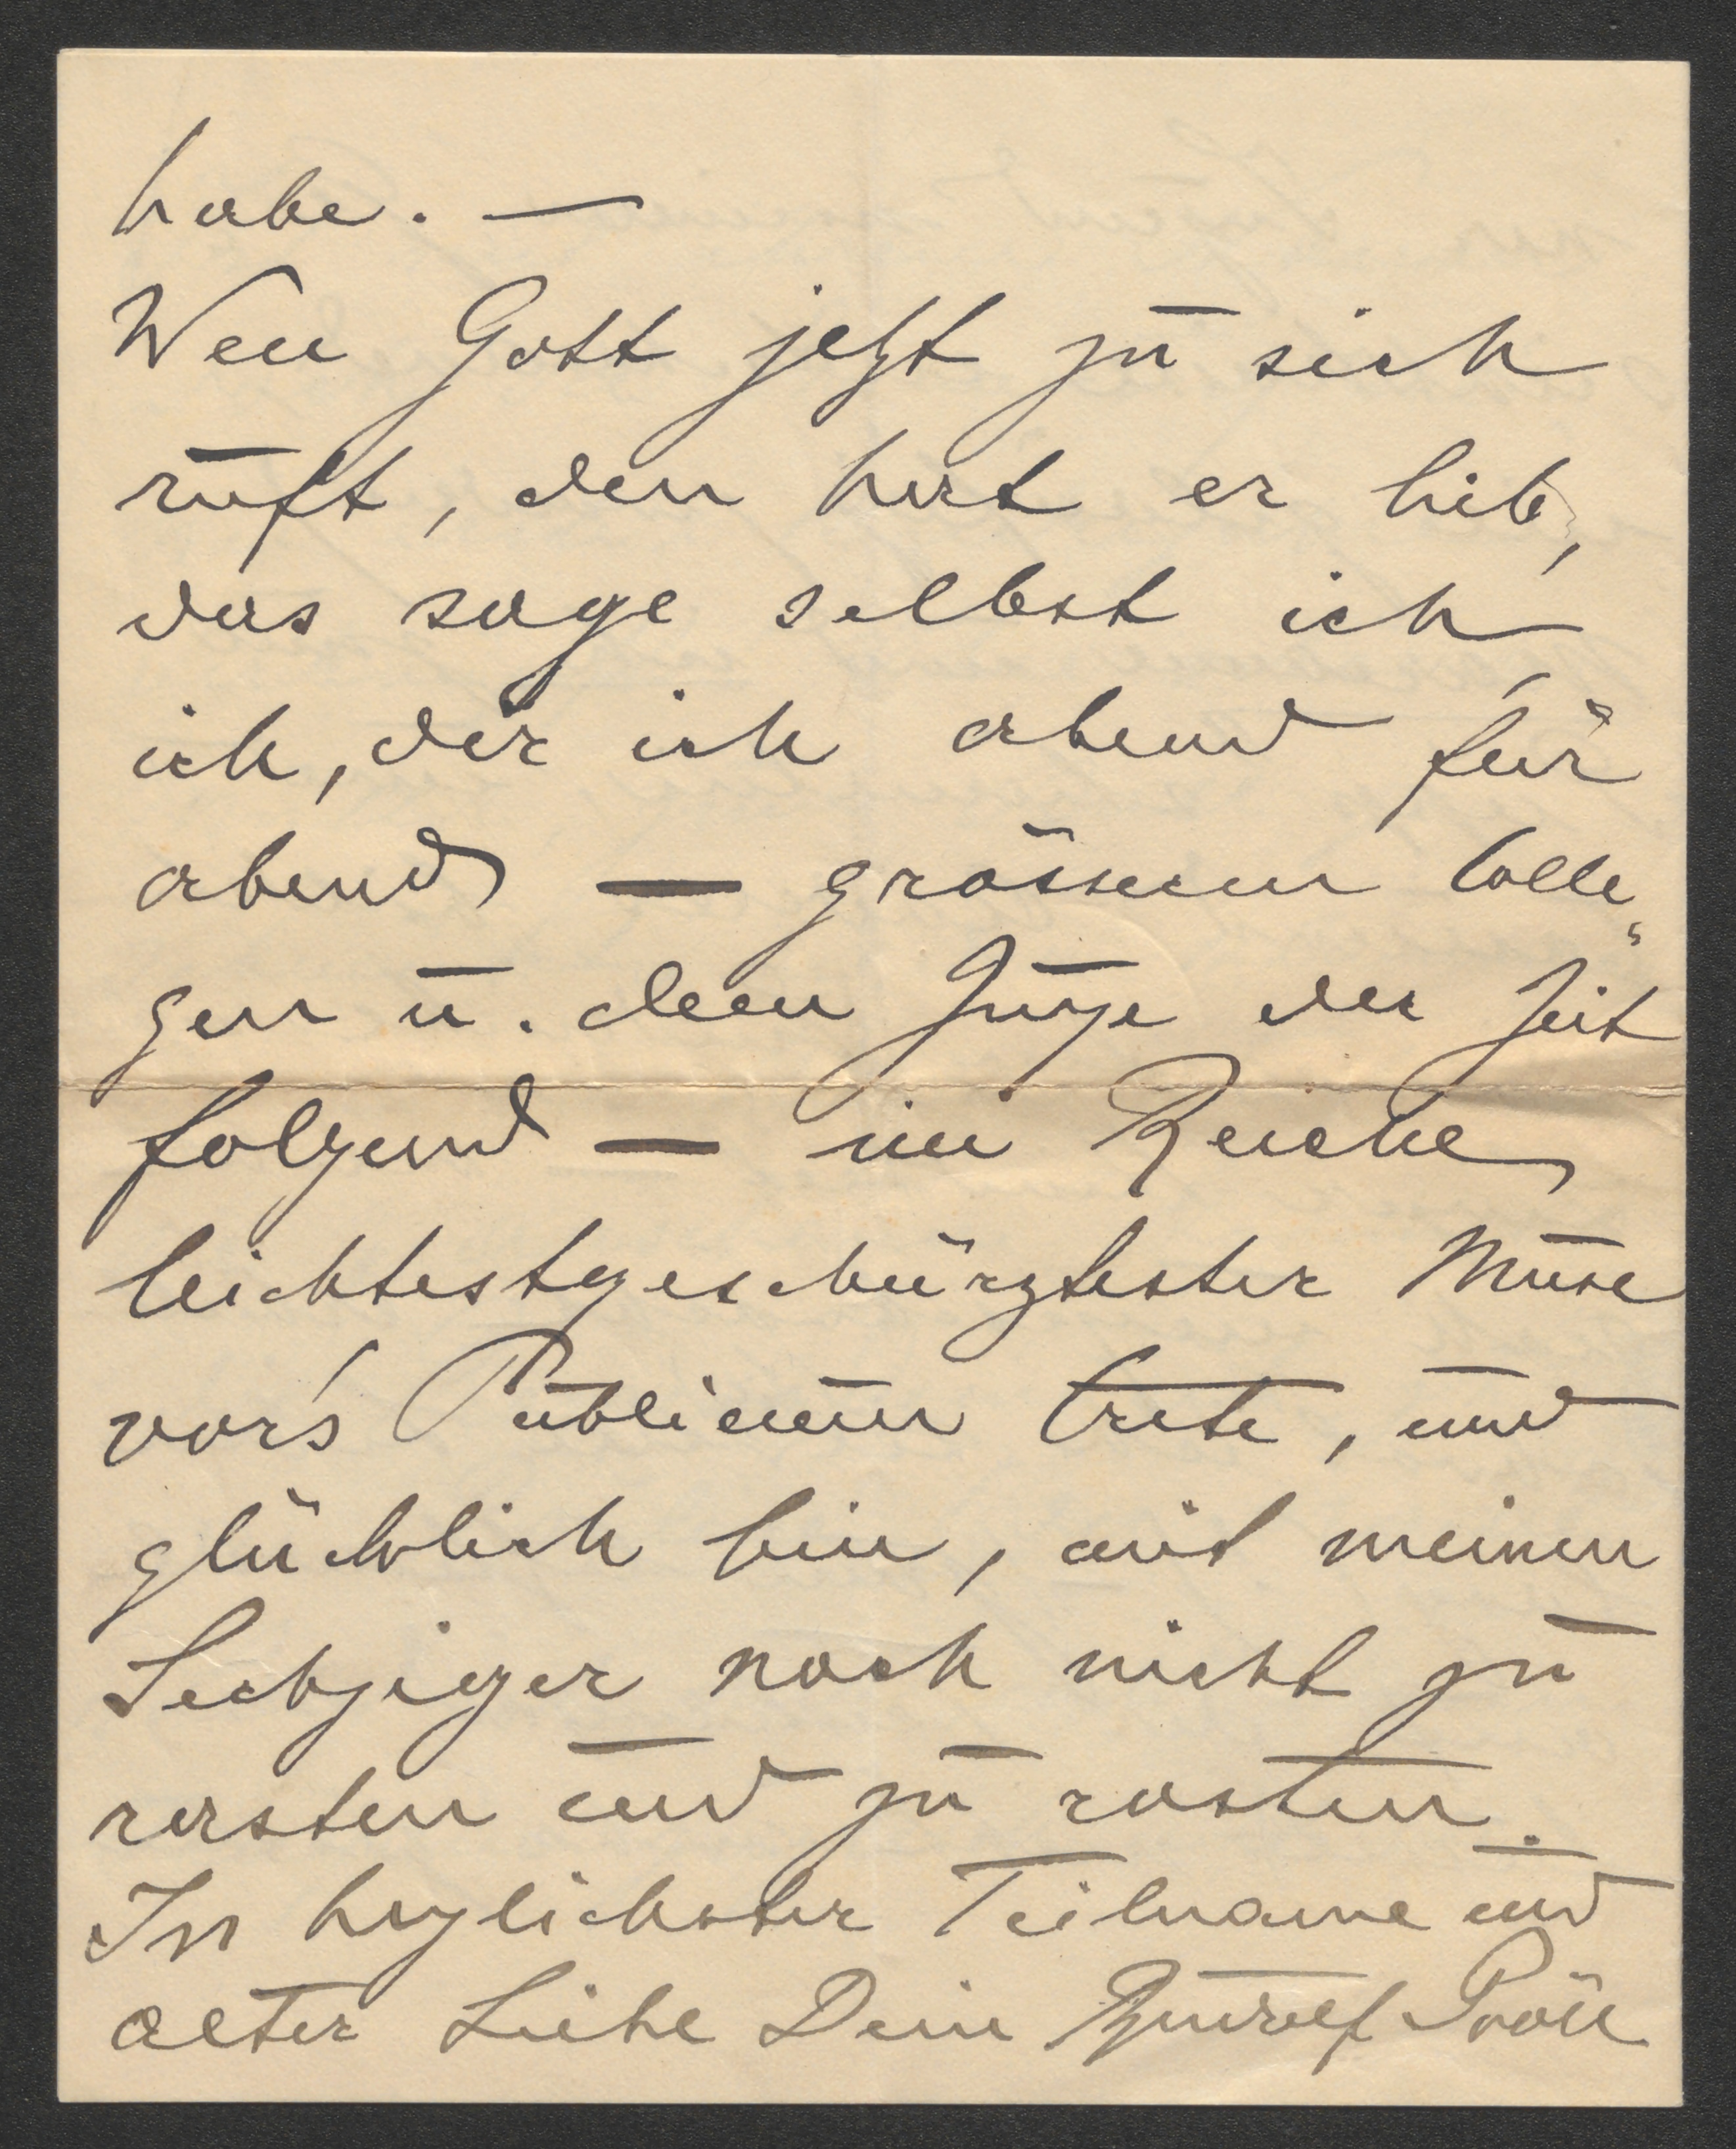 habe. —
Wen Gott jetzt zu sich
ruft, den hat er lieb,
das sage selbst ich
ich, der ich abend für
abend — grösseren Colle-
gen u. dem Zuge der Zeit
folgend — im Reiche
leichtestgeschürztester Muse
vor's Publicum trete, und
glücklich bin, mit meinen
Sechziger noch nicht zu
rasten und zu rosten.
In herzlichster Teilname und
alter Liebe Dein Rudolf Pröll